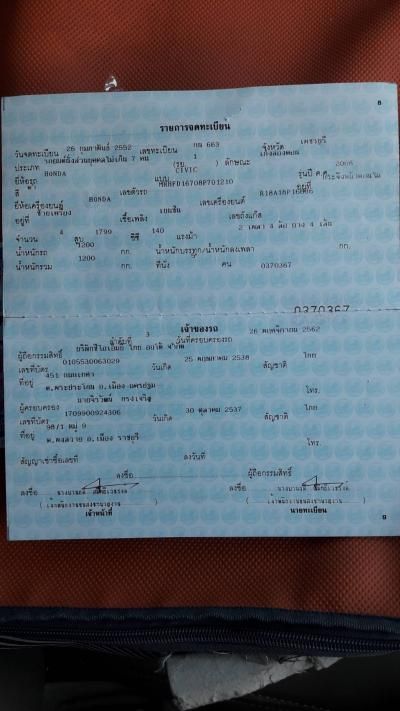 8
รายการจดทะเบียน
วันจดทะเบียน 26 กุมภาพันธ์ 2552 เลขทะเบียน กน 663 จังหวัด เพชรบุรี
ประเภท รถยนต์นั่งส่วนบุคคลไม่เกิน 7 คน (รย. 1 ลักษณะ เก๋งสองตอน
ยี่ห้อรถ HONDA แบบ CIVIC รุ่นปี ค.ศ. 2008
สี เลขตัวรถ MRHFD16708P701210 อยู่ที่
ยี่ห้อเครื่องยนต์ HONDA เลขเครื่องยนต์
อยู่ที่ ซ้ายเครื่อง เชื้อเพลิง เบนซิน เลขถังแก๊ส
จำนวน 4 สูบ 1799 ซีซี 140 แรงม้า 2 เพลา 4 ล้อ ยาง 4 เส้น
น้ำหนักรถ 1200 กก. น้ำหนักบรรทุก/น้ำหนักลงเพลา กก.
น้ำหนักรวม 1200 กก. ที่นั่ง คน 0370367
0370367
เจ้าของรถ
ลำดับที่ 3 วันที่ครอบครองรถ 26 พฤศจิกายน 2562
ผู้ถือกรรมสิทธิ์
เลขที่บัตร 0105530063029 วันเกิด 25 พฤษภาคม 2538 สัญชาติ ไทย
ที่อยู่ 451
อ.เมือง นครปฐม โทร.
ผู้ครอบครอง
เลขที่บัตร 1709900924306 วันเกิด 30 ตุลาคม 2537 สัญชาติ ไทย
ที่อยู่ 98/1 หมู่ 9
อ.เมือง ราชบุรี โทร.
สัญญาเช่าซื้อเลขที่ ลงวันที่
ลงชื่อ ผู้ถือกรรมสิทธิ์
ลงชื่อ ลงชื่อ
เจ้าหน้าที่ นายทะเบียน
9